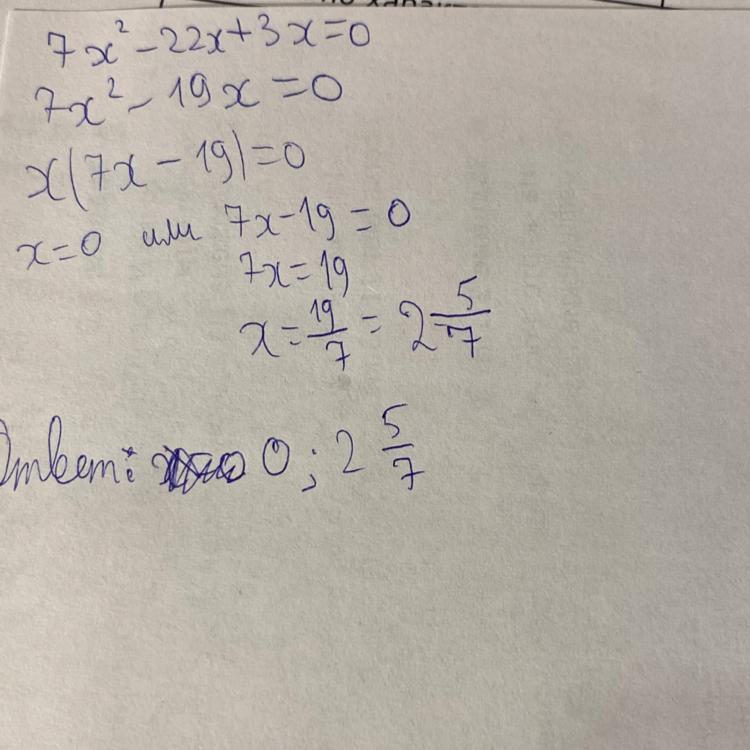 7x² - 22x + 3x = 0
7x² - 19x = 0
x(7x - 19) = 0
x = 0 или 7x - 19 = 0
7x = 19
x = 19/7 = 2 5/7
Ответ: 0; 2 5/7